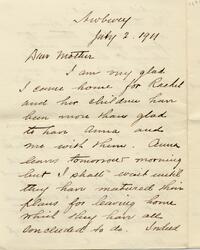 Newberry
July 2. 1911
Dear Mother
I am very glad
I came home for Rachel
and her children have
been more than glad
to have Anna and
me with them. Anna
leaves tomorrow morning
but I shall wait until
they have matured their
plans for leaving home
which they have all
concluded to do. Indeed